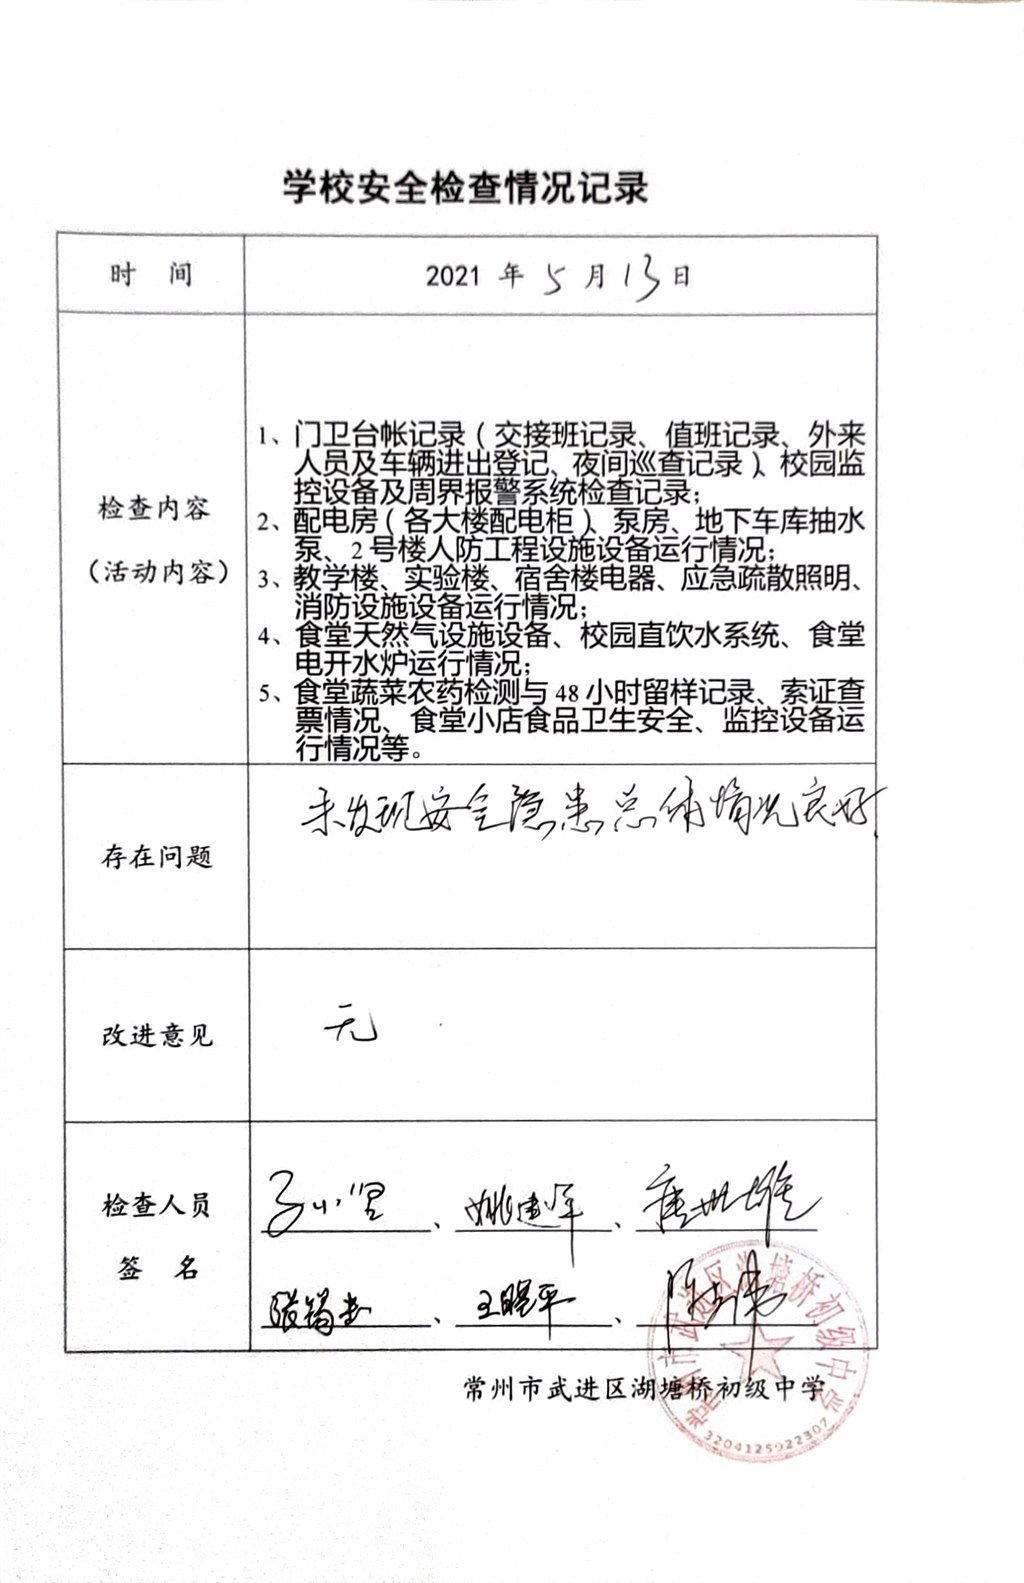 学校安全检查情况记录
时 间
2021 年 5 月 13 日
检查内容
（活动内容）
1、门卫台帐记录（交接班记录、值班记录、外来
人员及车辆进出登记、夜间巡查记录）、校园监
控设备及周界报警系统检查记录；
2、配电房（各大楼配电柜）、泵房、地下车库抽水
泵、2 号楼人防工程设施设备运行情况；
3、教学楼、实验楼、宿舍楼电器、应急疏散照明、
消防设施设备运行情况；
4、食堂天然气设施设备、校园直饮水系统、食堂
电开水炉运行情况；
5、食堂蔬菜农药检测与 48 小时留样记录、索证查
票情况、食堂小店食品卫生安全、监控设备运
行情况等。
存在问题
未发现安全隐患总体情况良好
改进意见
无
检查人员
签 名
、姚建军、
、王晓平、
常州市武进区湖塘桥初级中学
常州市武进区湖塘桥初级中学
3204125922307